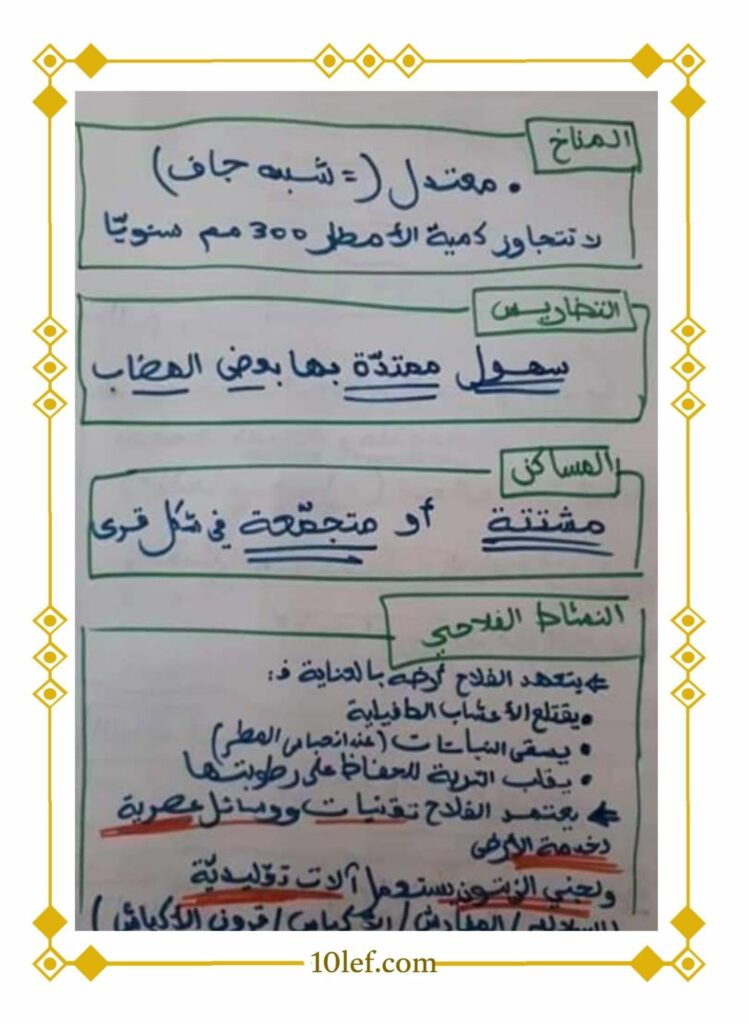 المناخ
• معتدل (= شبه جاف)
لا تتجاوز كمية الأمطار 300 مم سنويّا
التضاريس
سهول ممتدّة بها بعض الهضاب
المساكن
مشتتة أو متجمّعة في شكل قرى
النشاط الفلاحي
يتعهد الفلاح أرضه بالعناية فـ:
• يقتلع الأعشاب الطفيلية
• يسقي النباتات (عند انحباس المطر)
• يقلب التربة للحفاظ على رطوبتها
يعتمد الفلاح تقنيات ووسائل عصرية
لخدمة الأرض
ولجني الزيتون يستعمل آلات تقليديّة
(السلاليم / المفارش / الأكياس / قرون الأكباش)
10lef.com